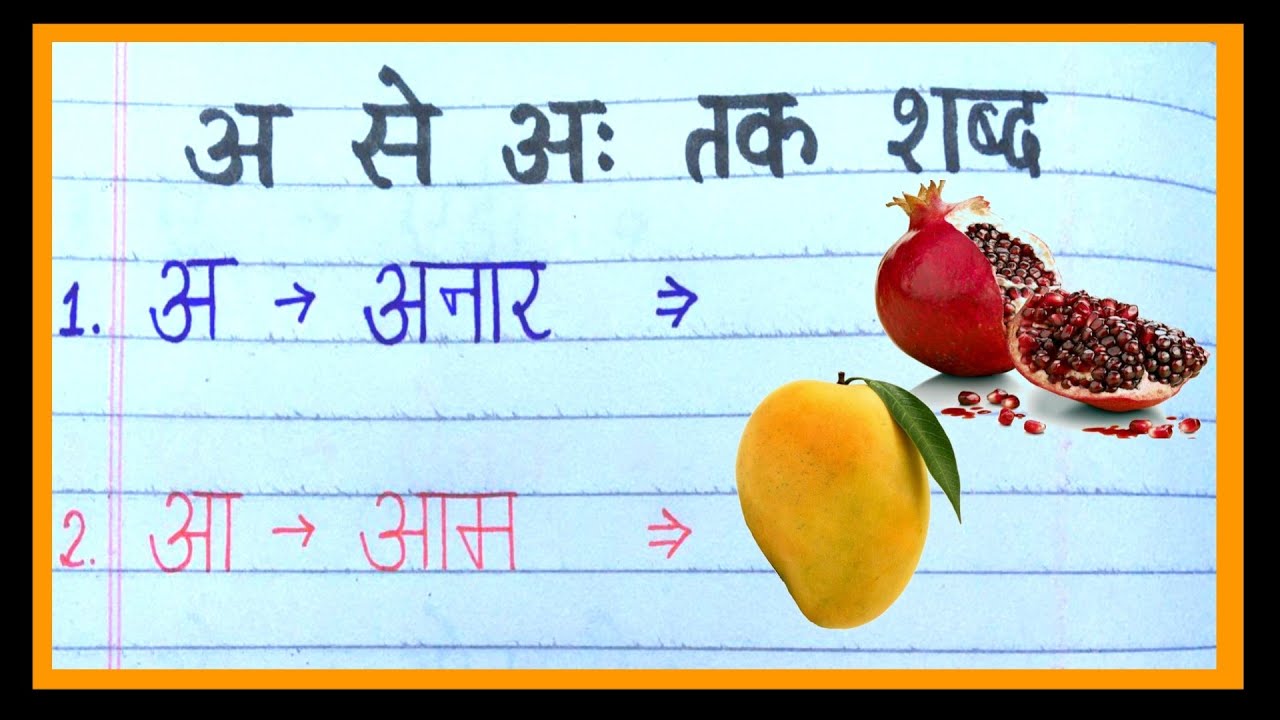 अ से अः तक शब्द
1. अ → अनार ⇒
2. आ → आम ⇒